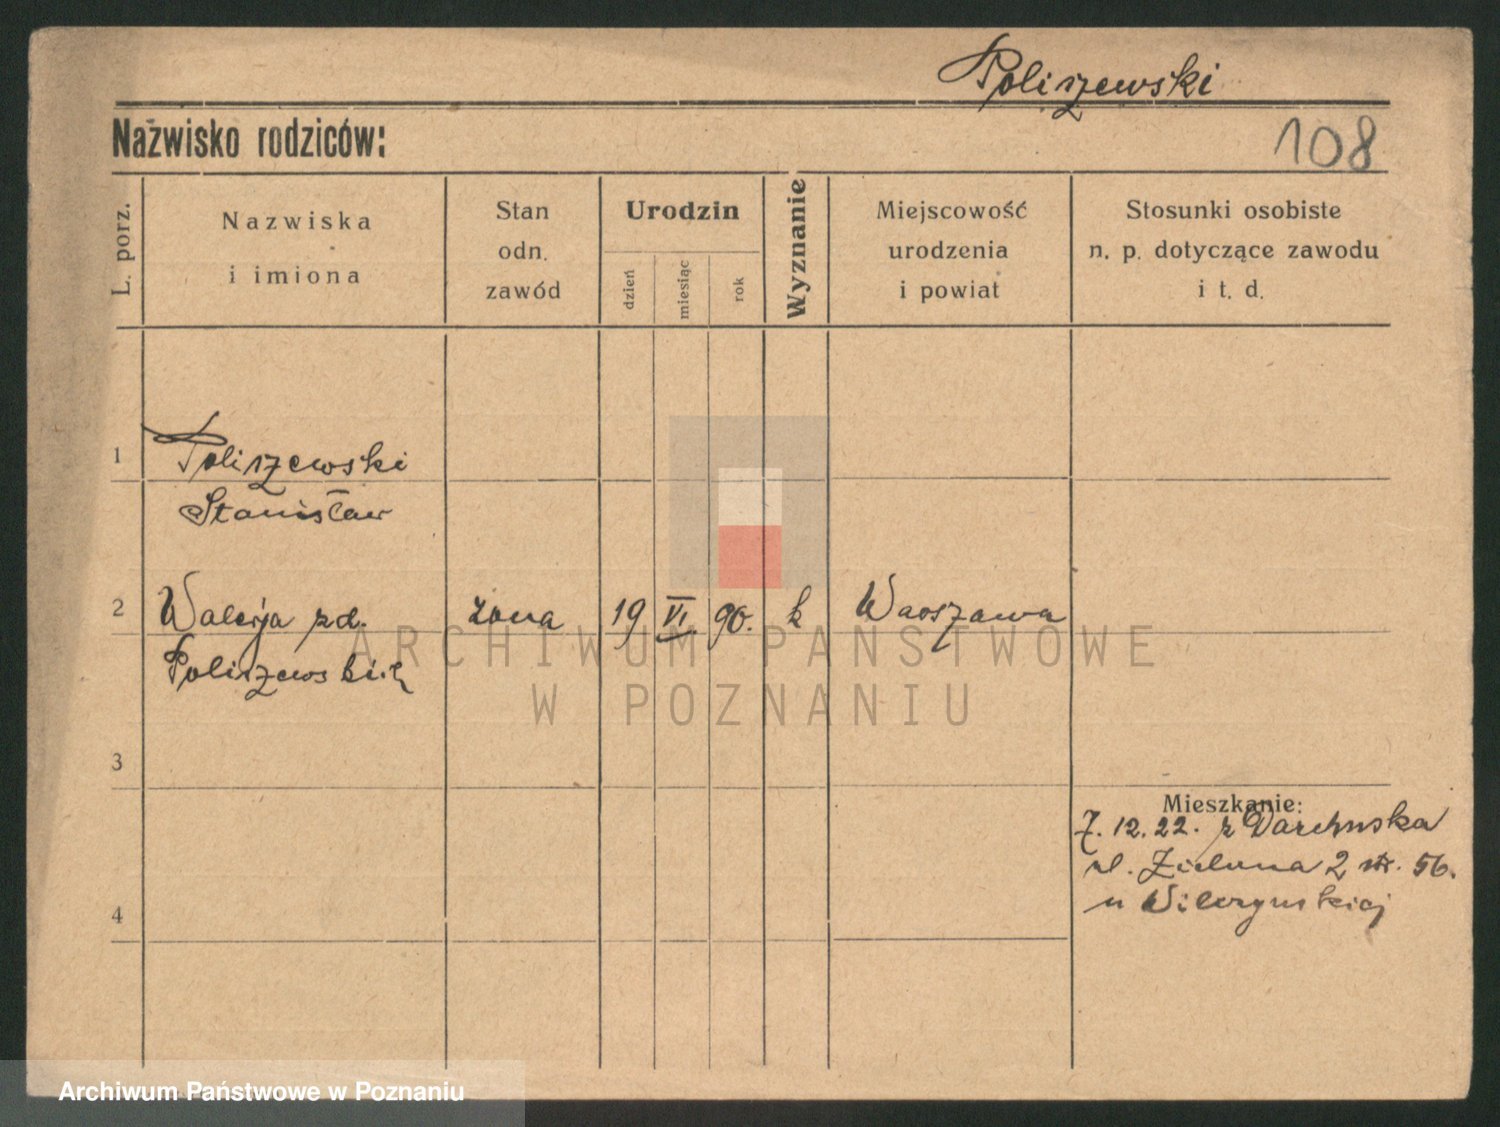 Poliszewski
Nazwisko rodziców:
108
L. porz.
Nazwiska
i imiona
Stan
odn.
zawód
Urodzin
dzień
miesiąc
rok
Wyznanie
Miejscowość
urodzenia
i powiat
Stosunki osobiste
n. p. dotyczące zawodu
i t. d.
1
Poliszewski
Stanisław
2
Walerja zd.
żona
19
VI
90.
k
Warszawa
ARCHIWUM PAŃSTWOWE
W POZNANIU
3
Mieszkanie:
7.12.22. z
ul. Zielona 2 56.
u Wilczyńskiej
4
Archiwum Państwowe w Poznaniu